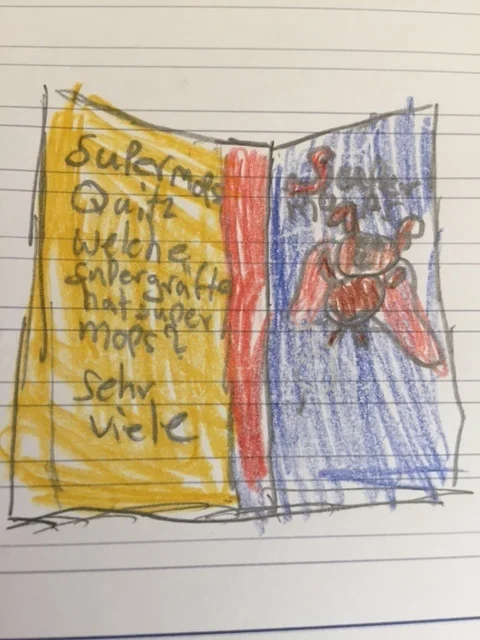 Supermops
Quitz
welche
supergräfte
hat super
mops?
Sehr
viele
Super